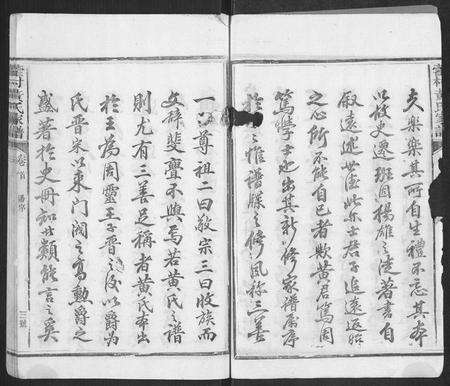 夫樂樂其所自生禮不忘其本
以故史遷班固楊雄之徒著書自
叙遠述世此亦士君子追遠返始
之心所不能自已者歟黃君篤周
篤學士也出其新修家譜屬序
於惟譜牒之修風称三善
一以尊祖二曰敬宗三曰收族而
文辞斐亹不與焉若黃氏之譜
則尤有三善足稱者黃氏本出
於王為周靈王子晋之後以爵為
氏晋宋以来門閥之高勳爵之
盛著於史冊世類能言之矣
村黃氏家譜
卷首
序
三號